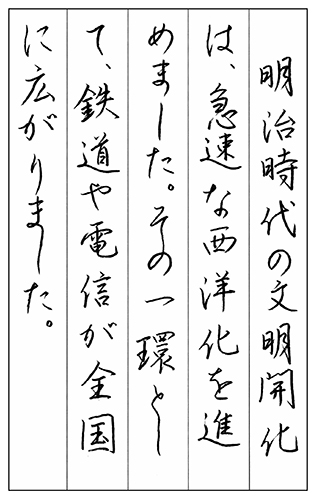 明治時代の文明開化
は、急速な西洋化を進
めました。その一環とし
て、鉄道や電信が全国
に広がりました。